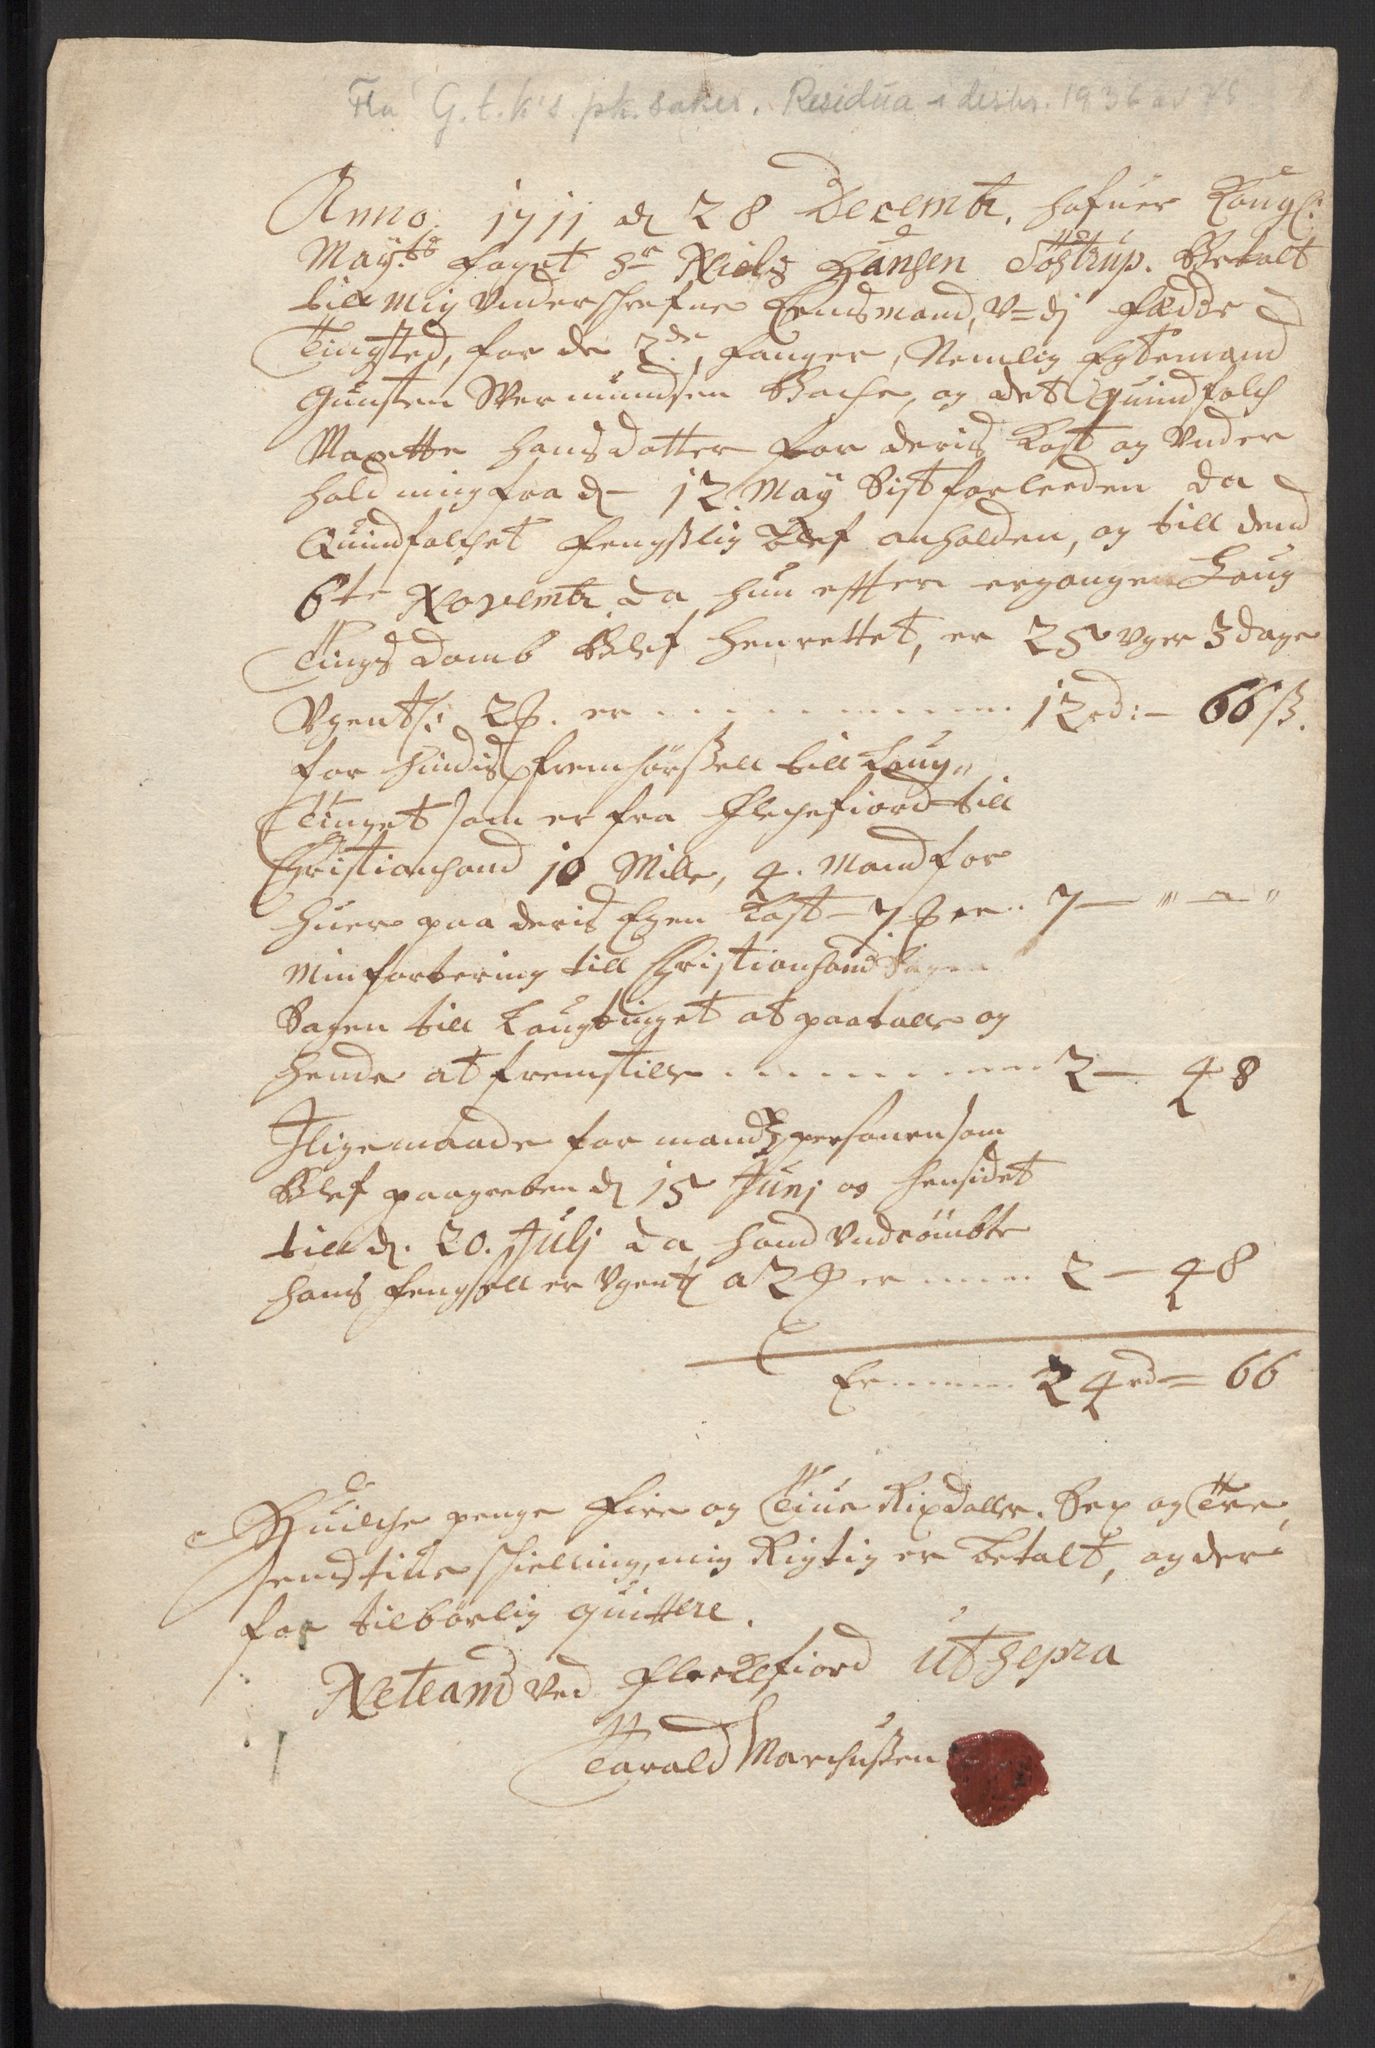 Fra G.t.k's pk. saker. Residua i desbr. 1936 av
Anno 1711 d 28 Decembr. hafuer Kongl:
May.ts foget Sr Niels Hansen Tostrup. Betalt
till mig Underschrefne Lensmand, V=dj Fædde
Tingsted, for de 2de fanger, Nemlig Egtemand
Gunsten Wermundsen Bache, og det quindfolch
Marette Hansdatter for deris Kost og Under
holdning fra d 12. May Sistforleeden da
Quindfolchet fengslig blef anholden, og till dend
6te Novembr. da hun effter ergangen Laug
Tings domb Blef henrettet, er 25 uger 3 dage
Ugentl: 2 er 12 rd:- 66 ß.
for hindis fremførßell till Laug,,
Tinget som er fra Flechefiord till
Christiansand 10 Mille, 4. Mand for
huer paa deris Egen Kost - 7 er .. 7 - " - "
Min fortering till Christiansand
Sagen till Laugtinget at paatalle og
hende at fremstille 2 - 48
Jligemaade for mands personen som
Blef paagreben d 15 Junj og hensidet
till d. 20. Julj da hand undrømbte
hans fengsell er Ugentl a 2 er 2 - 48
Er 24 rd = 66
Huilche penge Fire og Tiue Rixdaller. Sex og Tre,
sendstiue schielling, mig Rigtig er betalt, og der
for tilbørlig quittere.
Neteland ved Fleckefiord ut Sepra
Tarald Marchussen